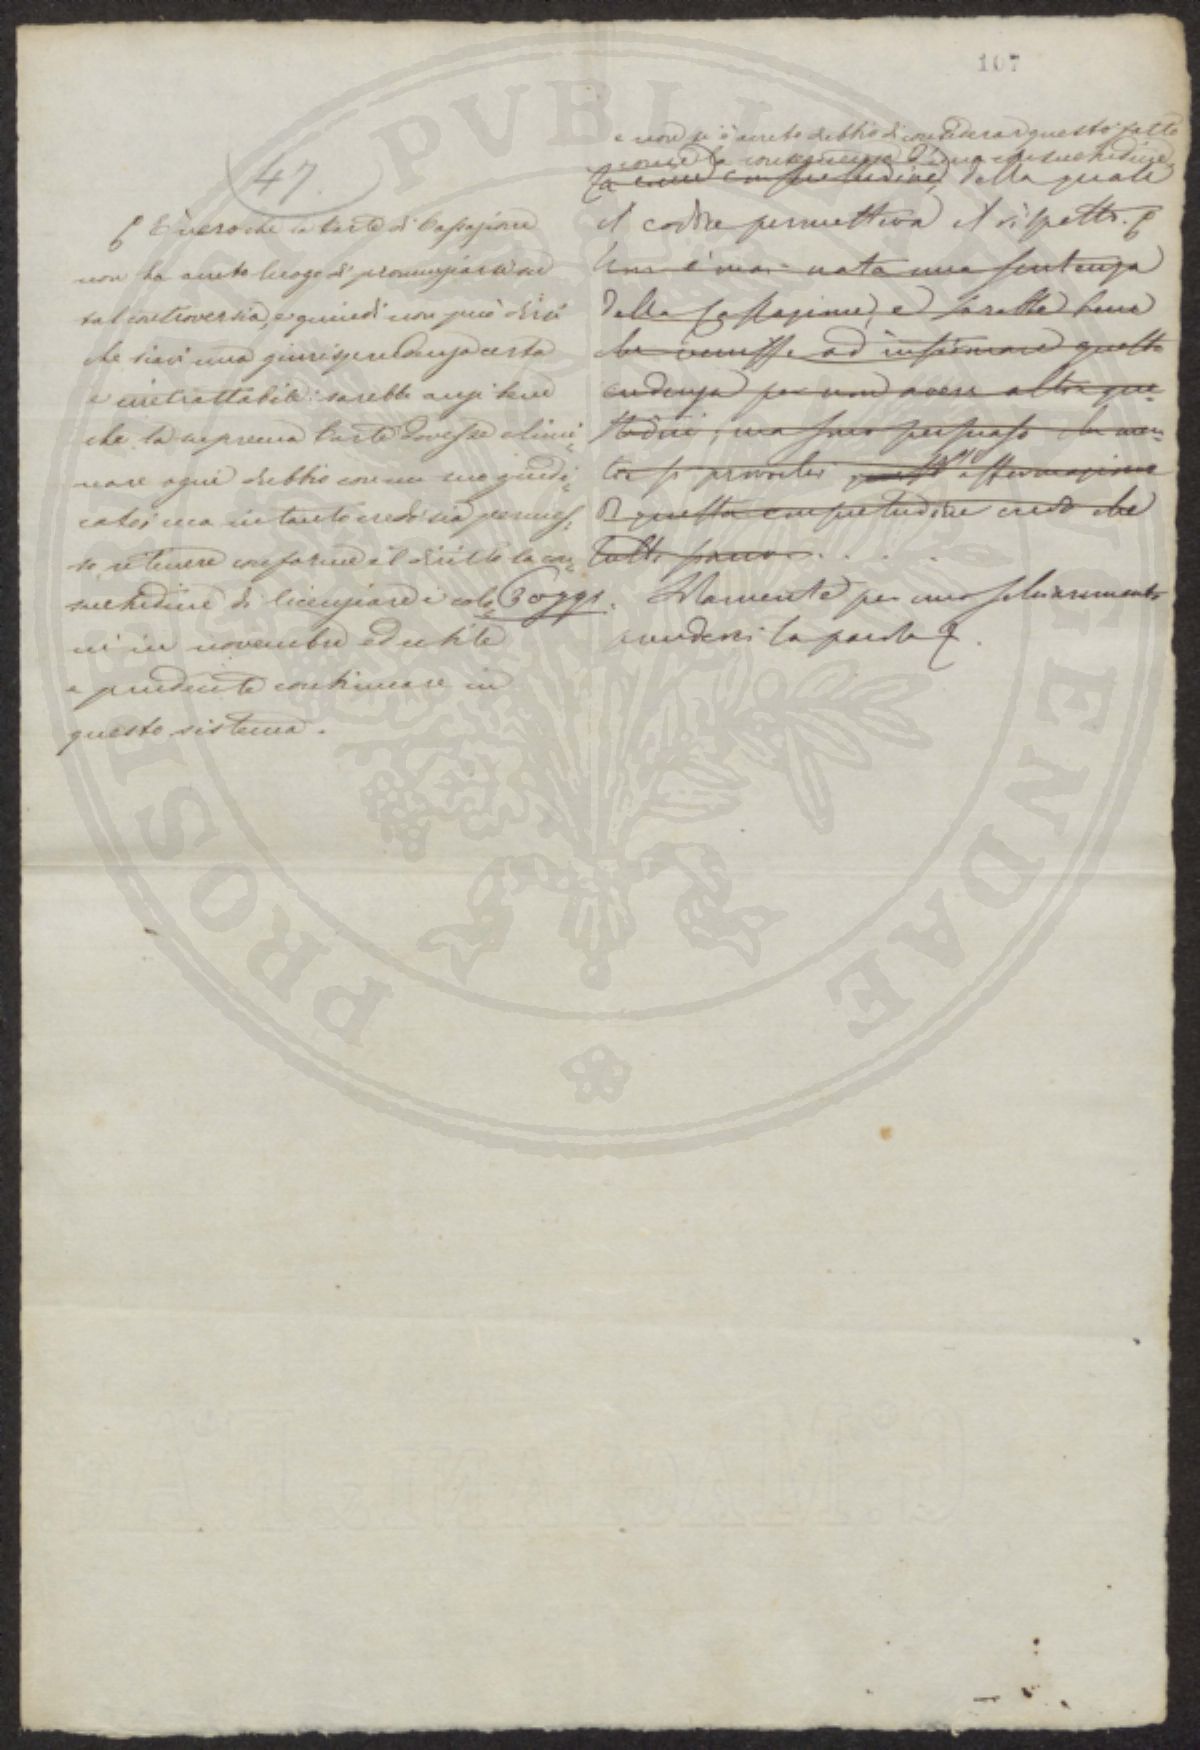 107
47.
È vero che la Corte di Cassazione
non ha avuto luogo di pronunziarsi su
tal controversia, e quindi non può dirsi
che siavi una giurisprudenza certa
e irretrattabile: sarebbe anzi bene
che la suprema Corte dovesse elimi=
nare ogni dubbio con un suo giudi=
cato; ma intanto credo sia permes=
so, ritenere conforme al diritto la con=
suetudine di licenziare i colo=
ni in novembre ed utile
e prudente continuare in
questo sistema.
e non si è avuto dubbio di considerar questo fatto
come la conseguenza d'una consuetudine,
consuetudine, della quale
il codice permetteva il rispetto.
Non è mai nata una sentenza
della Cassazione, e sarebbe bene
che venisse ad infirmare questa
per non avere altre que=
stioni, ma sono persuaso che
si affermazione
di questa consuetudine credo che
tutti
Poggi. Solamente per uno schiarimento
prenderei la parola.
PVBLI
PROSPE
GENDAE